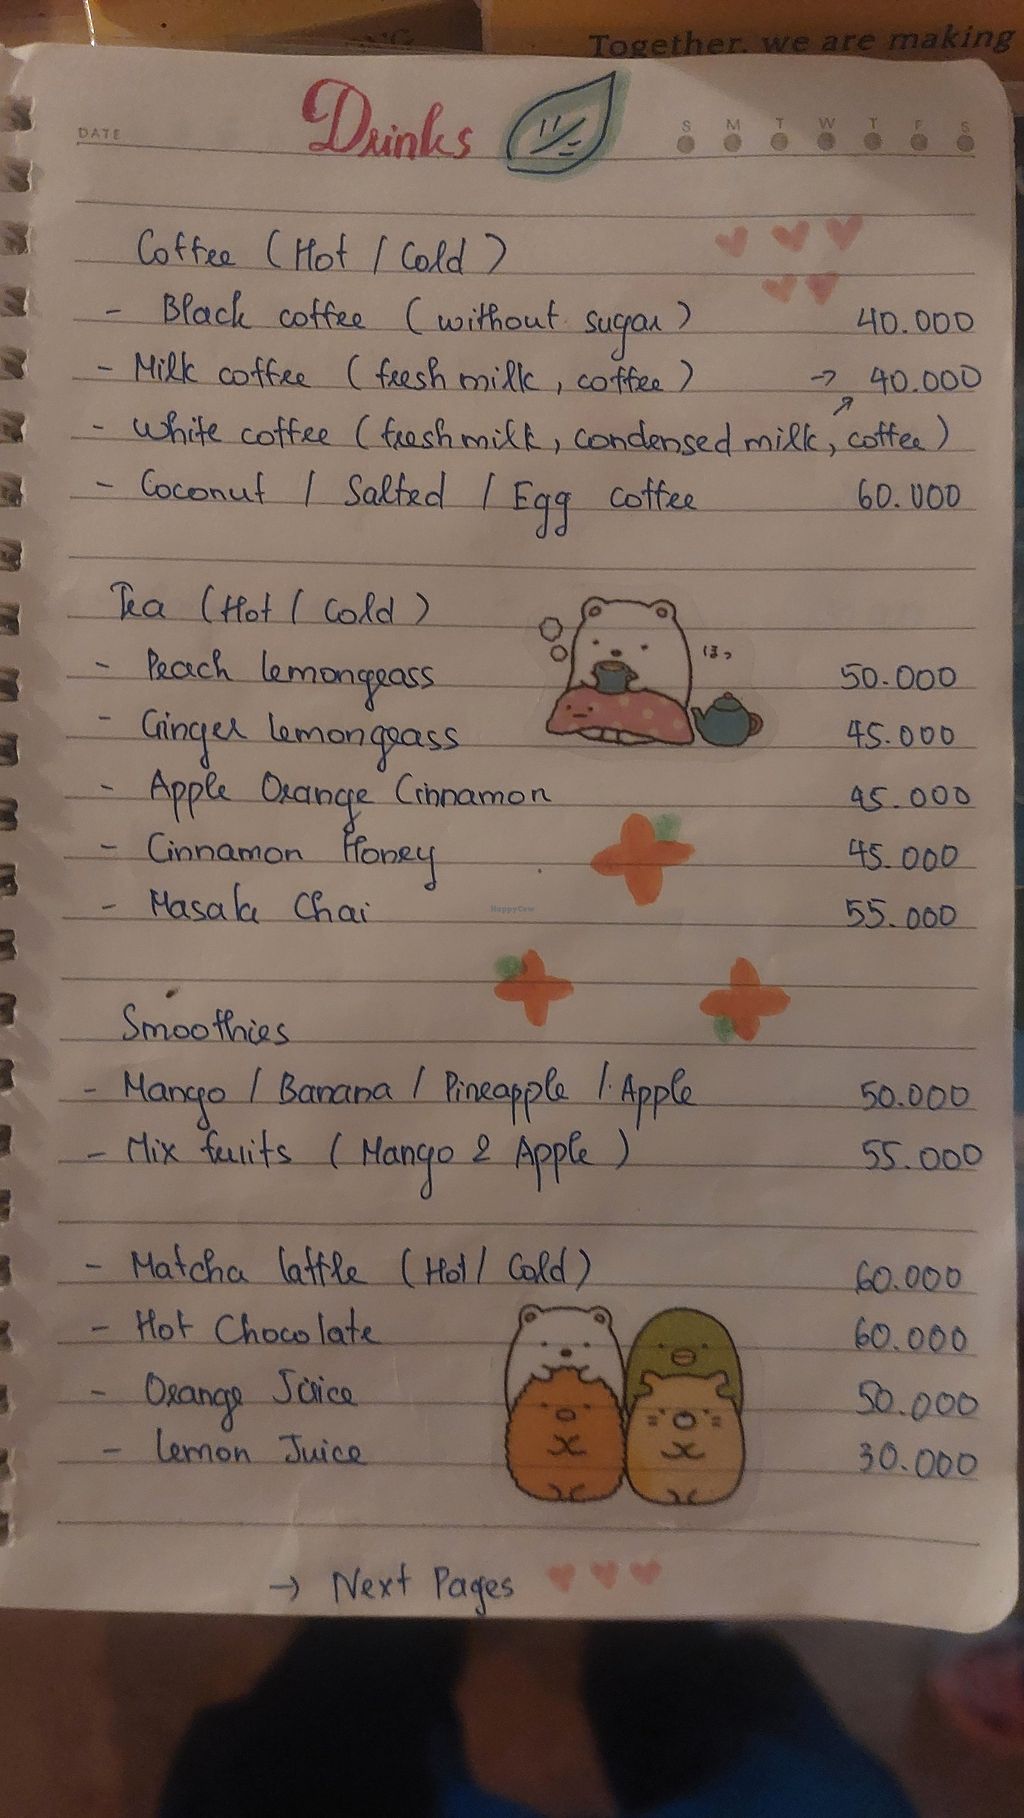 Together, we are making
DATE
Drinks
S M T W T F S
Coffee (Hot / Cold)
- Black coffee (without sugar) 40.000
- Milk coffee (fresh milk, coffee) → 40.000
- White coffee (fresh milk, condensed milk, coffee) ↗
- Coconut / Salted / Egg coffee 60.000
Tea (Hot / Cold)
ほっ
- Peach lemongrass 50.000
- Ginger lemongrass 45.000
- Apple Orange Cinnamon 45.000
- Cinnamon Honey 45.000
- Masala Chai 55.000
HappyCow
Smoothies
- Mango / Banana / Pineapple / Apple 50.000
- Mix fruits (Mango & Apple) 55.000
- Matcha latte (Hot / Cold) 60.000
- Hot Chocolate 60.000
- Orange Juice 50.000
- Lemon Juice 30.000
→ Next Pages